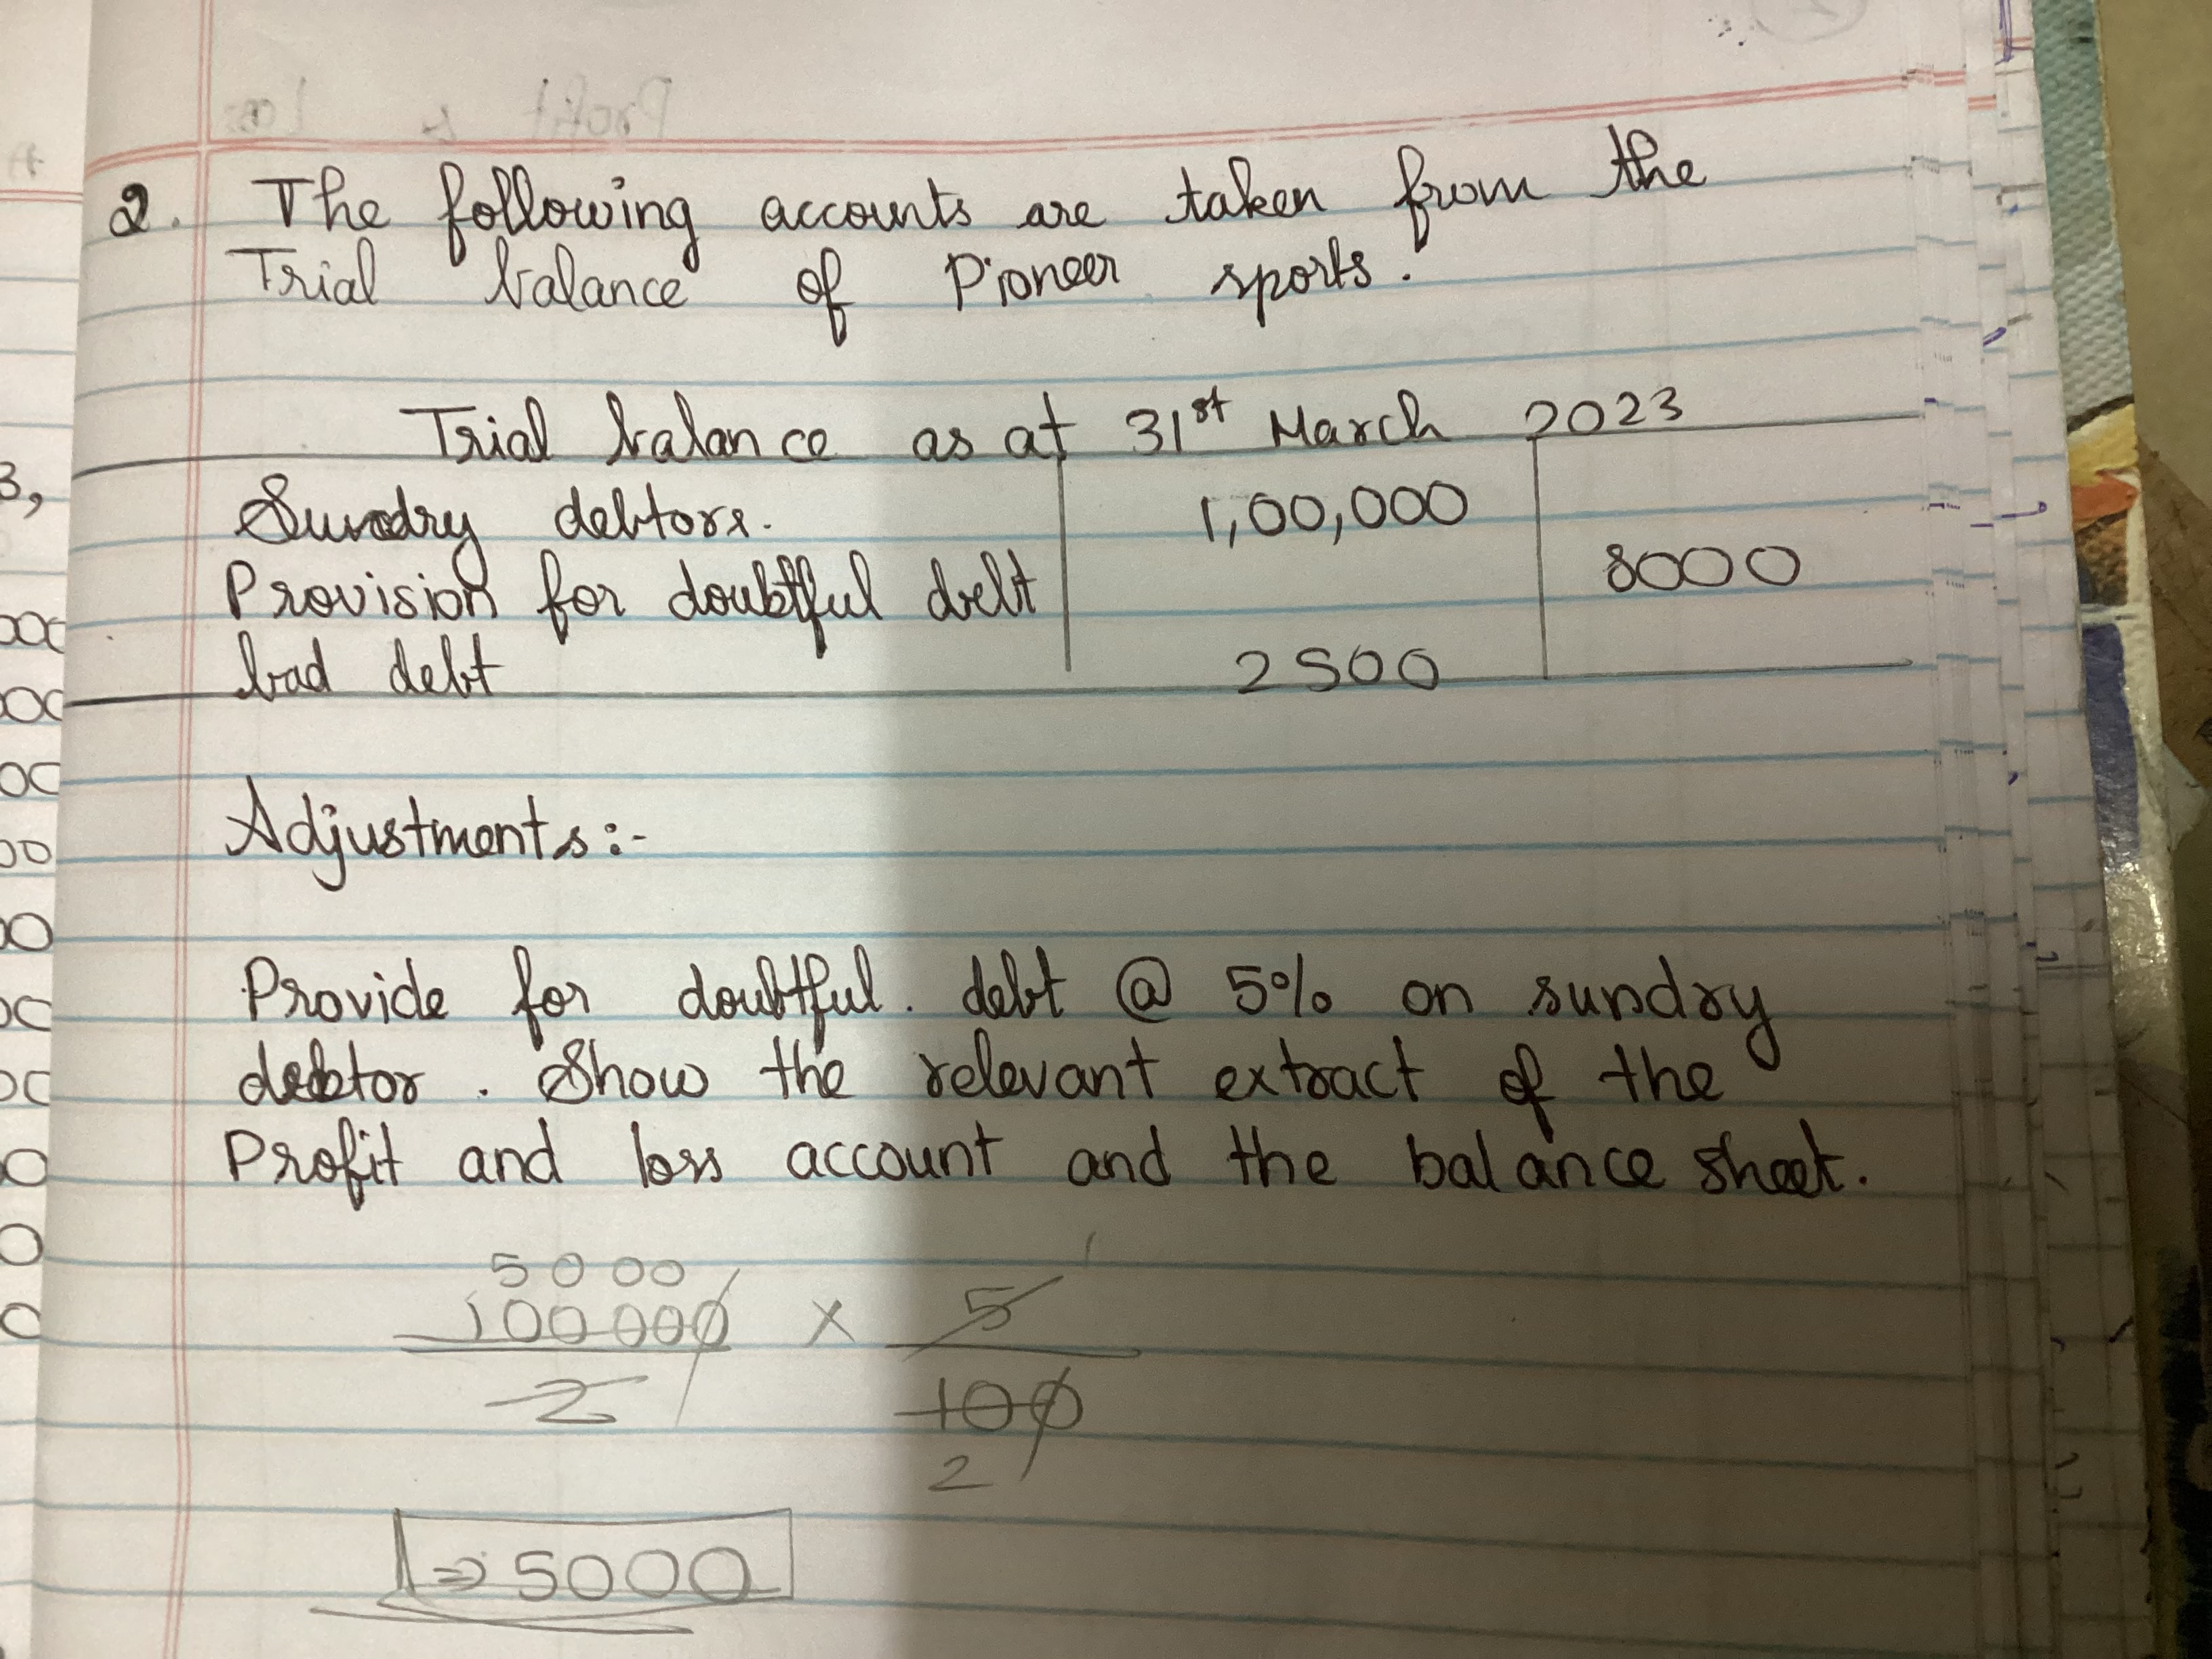 2. The following accounts are taken from the
Trial balance of Pioneer sports.
Trial balance as at 31st March 2023
Sundry debtors. 1,00,000
Provision for doubtful debt 8000
bad debt 2500
Adjustments:-
Provide for doubtful. debt @ 5% on sundry
debtor. Show the relevant extract of the
Profit and loss account and the balance sheet.
5000 1
100000 × 5
2 100
2
⇒ 5000